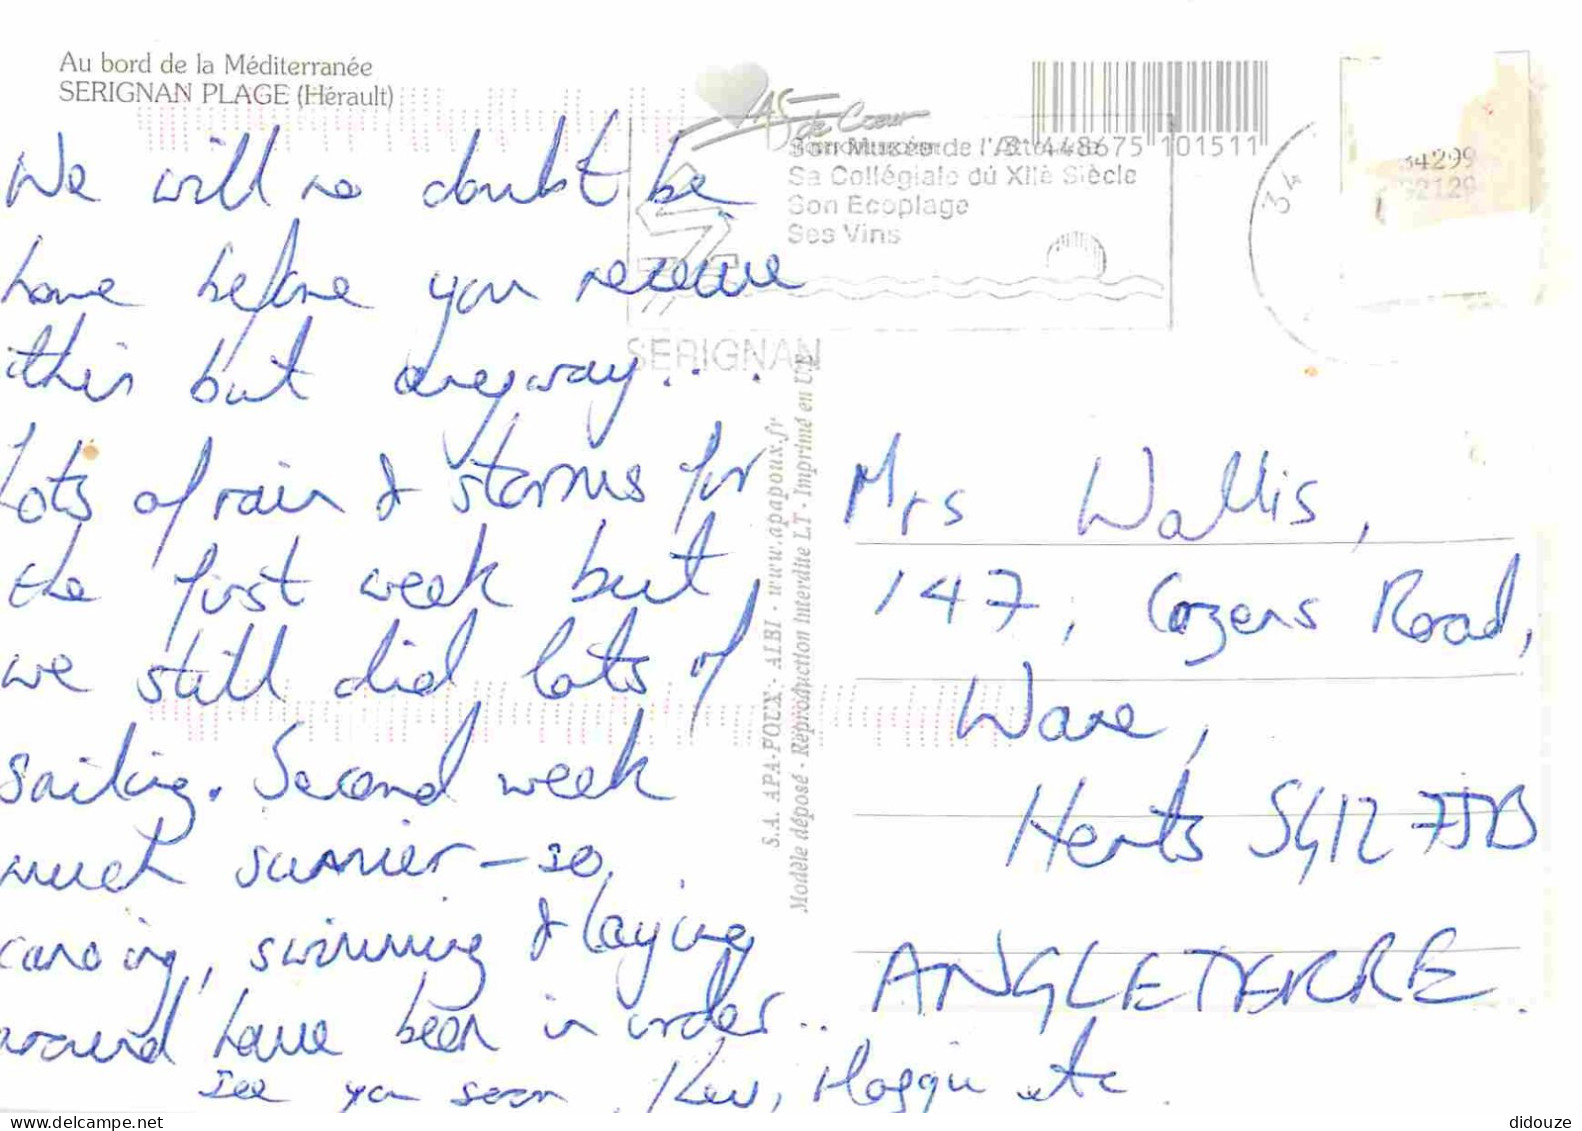 Au bord de la Méditerranée
SERIGNAN PLAGE (Hérault)
As de Cœur
3 448675 101511
Son Musée de
Sa Collégiale du XIIè Siècle
Son Ecoplage
Ses Vins
SERIGNAN
34
34299
We will no doubt be
home before you receive
this but anyway...
Lots of rain & storms for
the first week but
we still did lots of
sailing. Second week
much sunnier - so
canoeing, swimming & laying
around have been in order..
See you soon, Kev, Maggie etc
S.A. APA-POUX - ALBI - www.apapoux.fr
Modèle déposé - Réproduction interdite LT - Imprimé en U.E
Mrs Wallis,
147, Cozens Road,
Ware,
Herts SG12 7JB
ANGLETERRE.
didouze